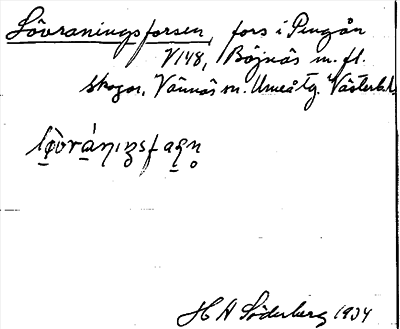 Lövraningsforsen, fors i Pengån
V148, Böjnäs m. fl.
skogar, Vännäs m. Umeå tg. Västerbl.
H A Söderberg 1934